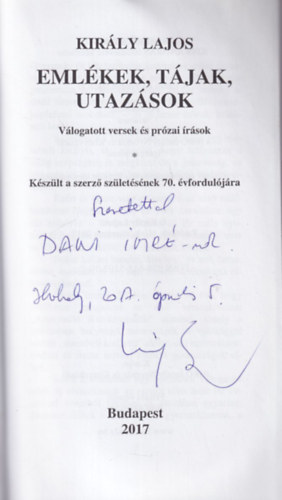 KIRÁLY LAJOS
EMLÉKEK, TÁJAK,
UTAZÁSOK
Válogatott versek és prózai írások
*
Készült a szerző születésének 70. évfordulójára
Szeretettel
DANI -nek.
2017. április 5.
Budapest
2017